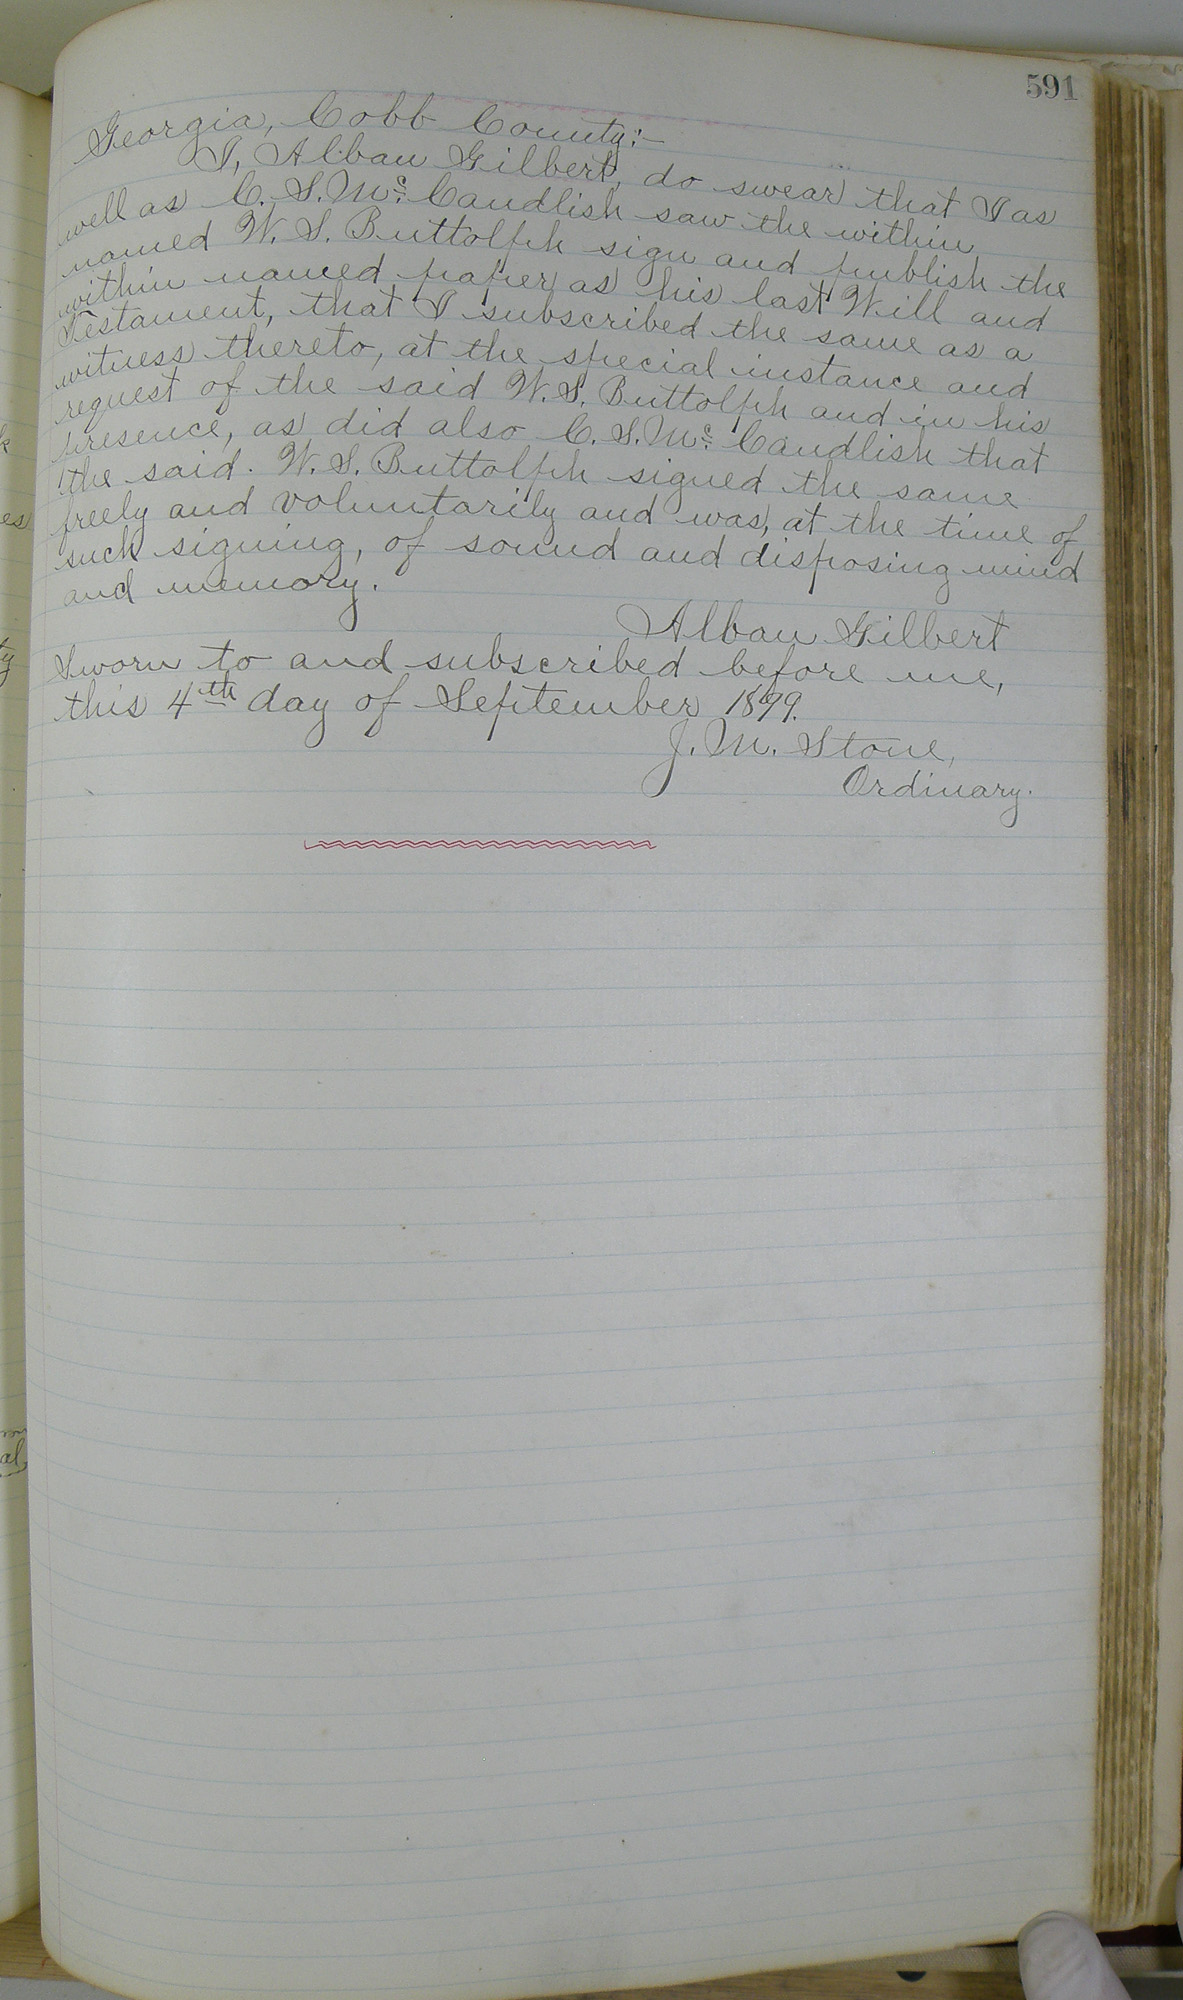 591
Georgia, Cobb County:-
I, Alban Gilbert, do swear that I as
well as C. S. Mc. Candlish saw the within
named W. S. Buttolph sign and publish the
within named paper as his last Will and
Testament, that I subscribed the same as a
witness thereto, at the special instance and
request of the said W. S. Buttolph and in his
presence, as did also C. S. Mc. Candlish that
the said. W. S. Buttolph signed the same
freely and voluntarily and was, at the time of
such signing, of sound and disposing mind
and memory.
Alban Gilbert
Sworn to and subscribed before me,
this 4th day of September 1899.
J. M. Stone,
Ordinary.